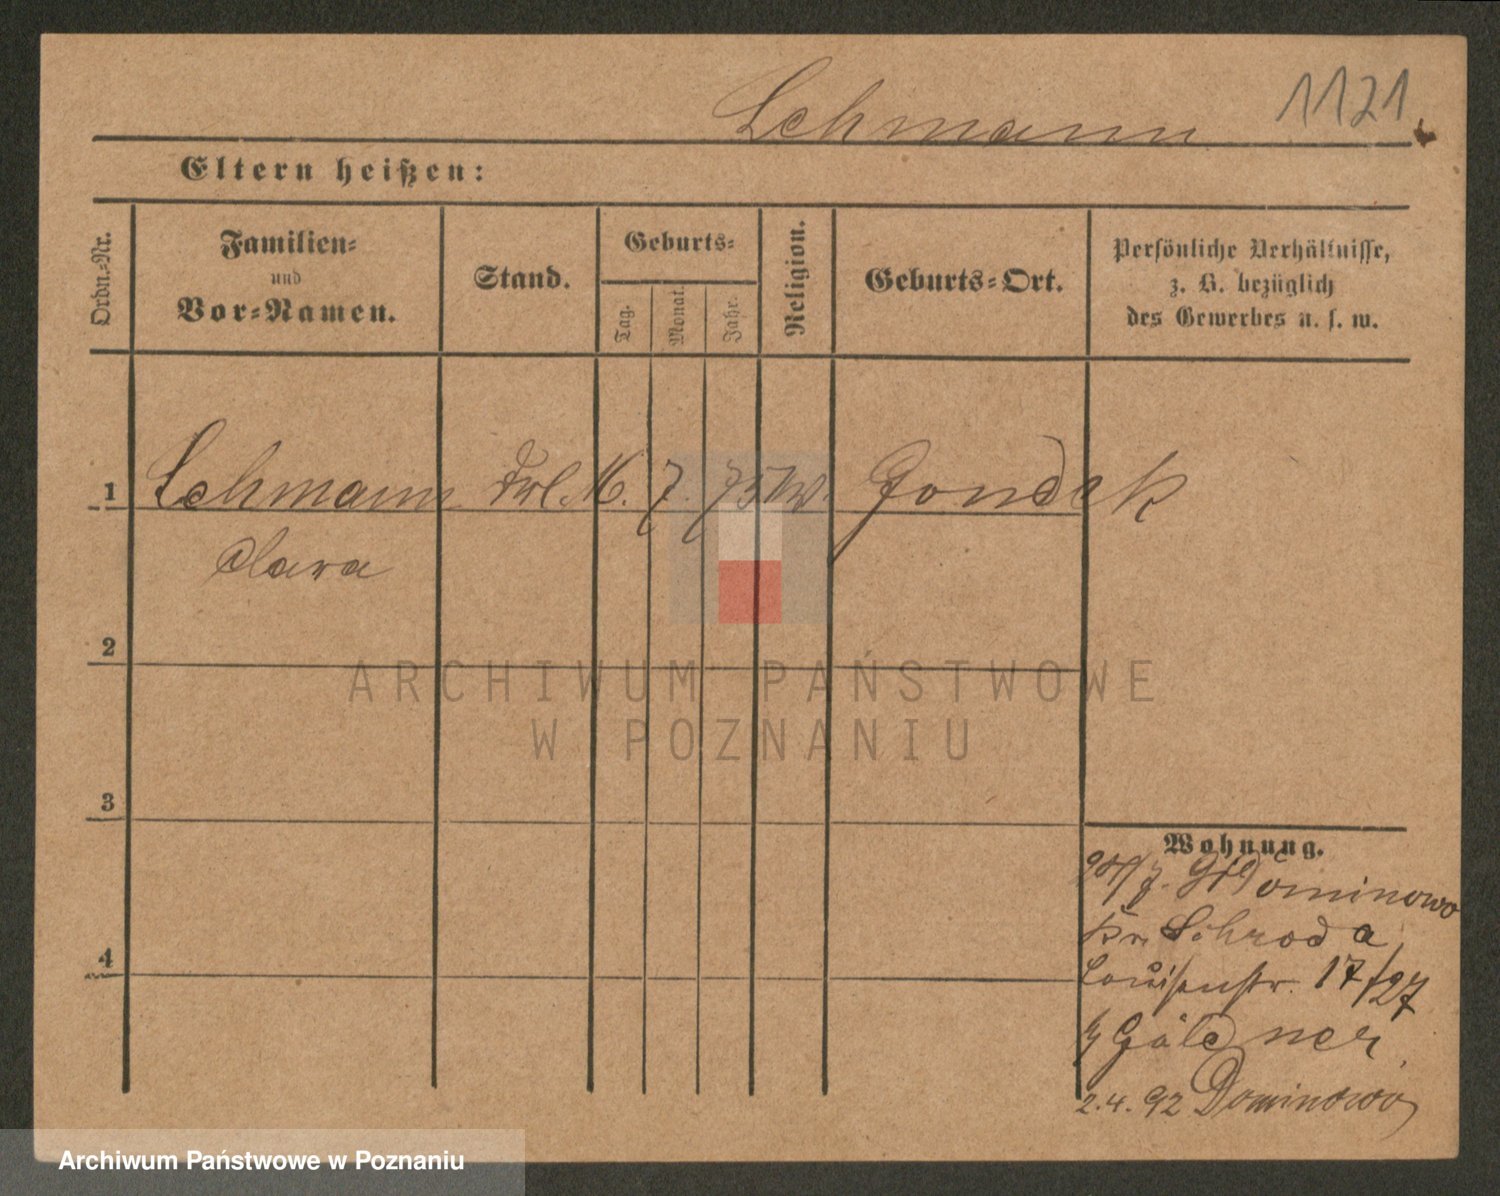 Lehmann
1121
Eltern heißen:
Ordn.=Nr.
Familien=
und
Vor=Namen.
Stand.
Geburts=
Tag.
Monat.
Jahr.
Religion.
Geburts=Ort.
Persönliche Verhältnisse,
z. B. bezüglich
des Gewerbes u. s. w.
1 Lehmann Frl. 16. 7. 75 Gondek
Clara
2
3
4
Wohnung.
Dominowo
Kr. Schroda
Louisenstr. 17/27
Güldner
2.4.92 Dominowo
ARCHIWUM PAŃSTWOWE
W POZNANIU
Archiwum Państwowe w Poznaniu